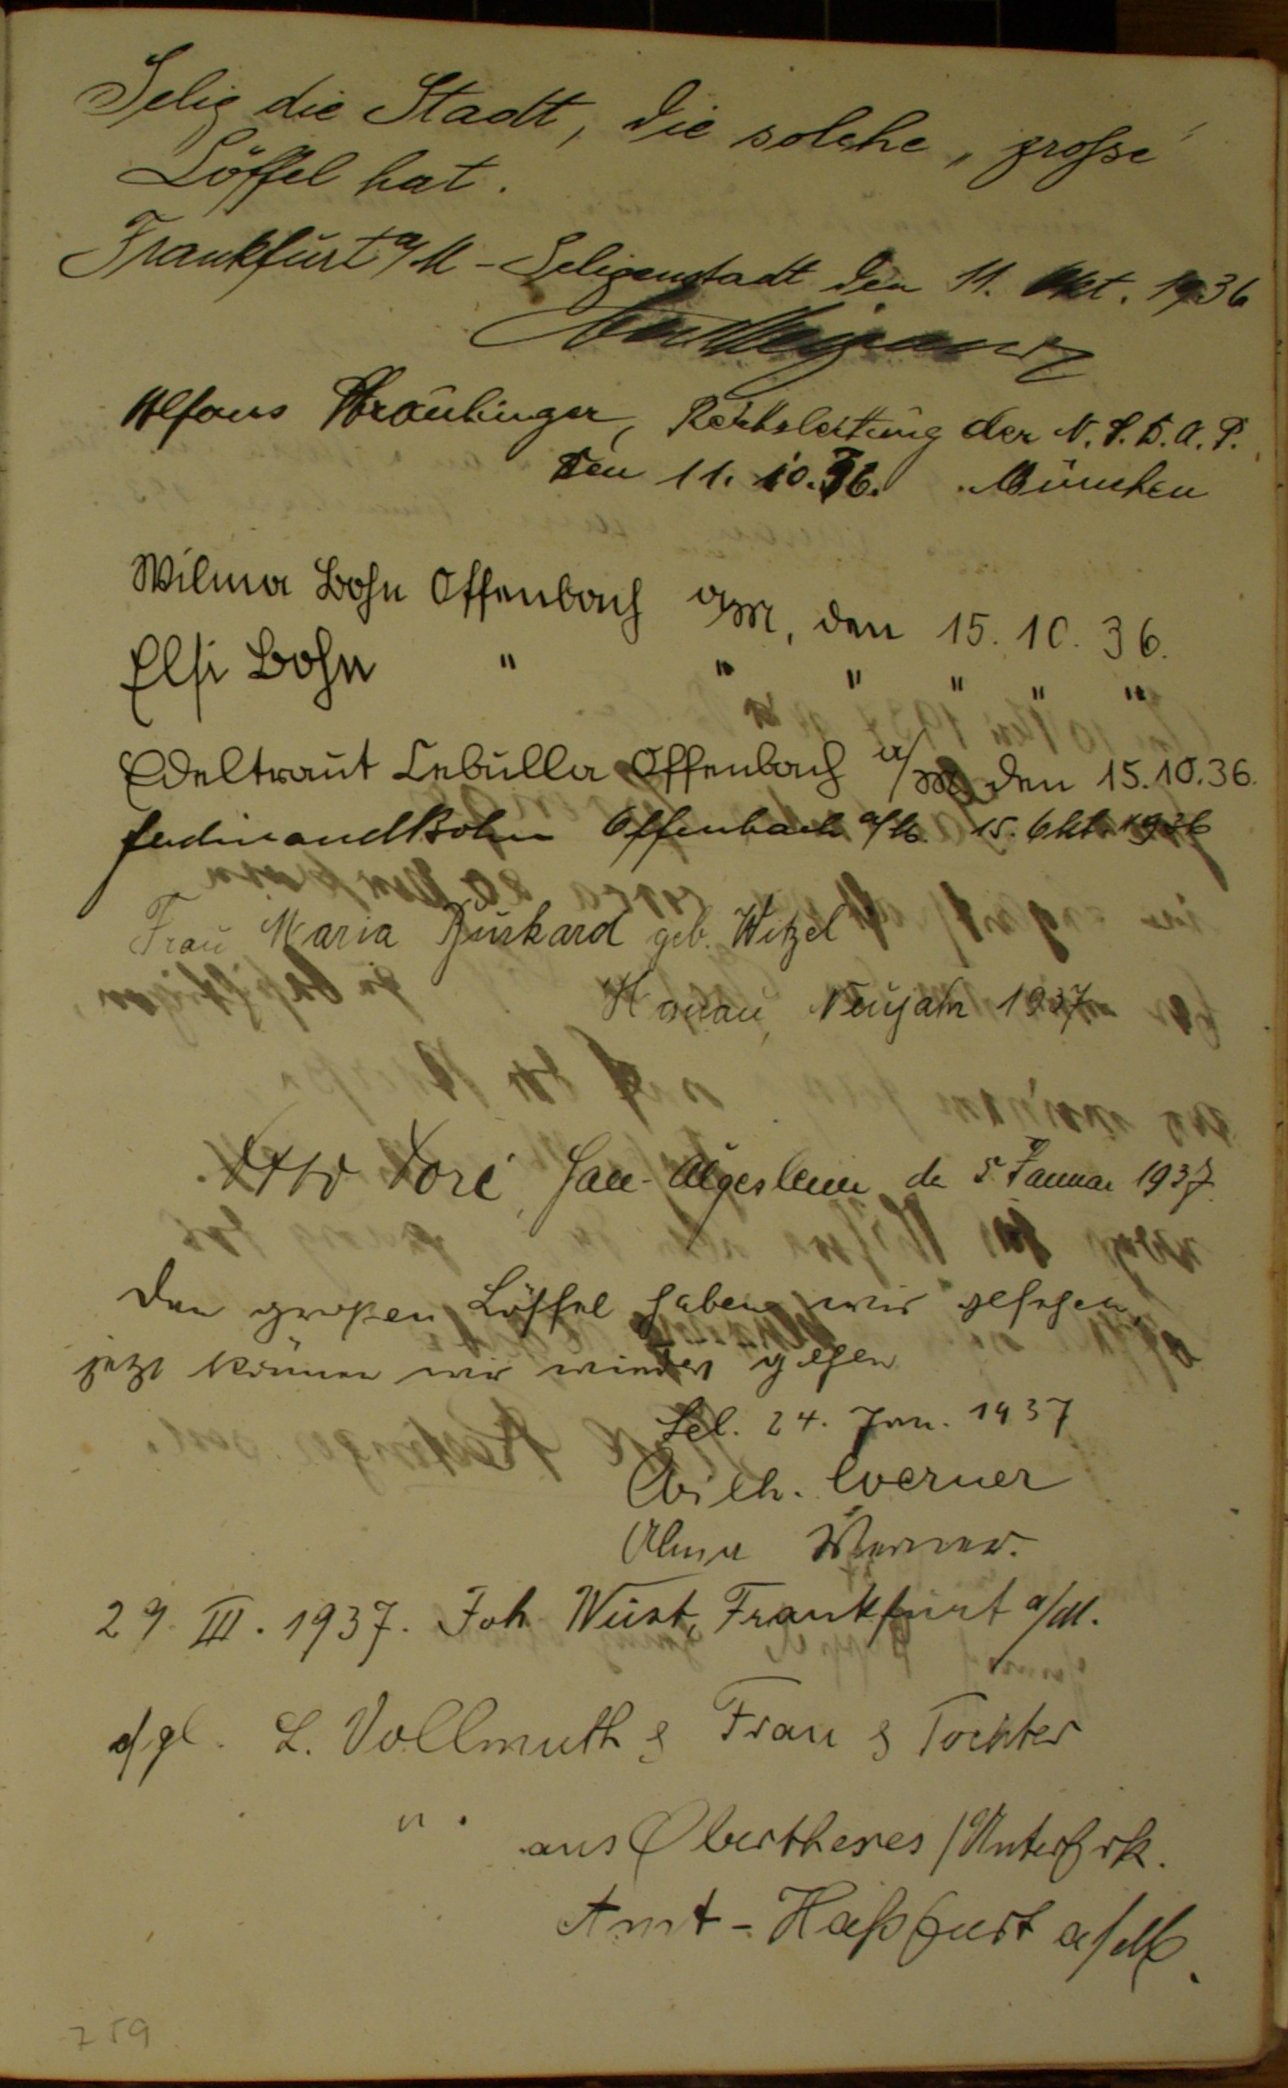 Selig die Stadt, die solche „grosse"
Löffel hat.
Frankfurt a/M - Seligenstadt den 11. Okt. 1936
Alfons Straubinger, Reichsleitung der N.S.D.A.P.
den 11.10.36. München
Wilma Bohn Offenbach a/M, den 15.10.36.
Elsi Bohn " " " " " "
Edeltraut Cebulla Offenbach a/M, den 15.10.36.
Ferdinand Bohn Offenbach a/M. 15. Okt. 1936
Frau Maria Burkard geb. Witzel
Hanau, Neujahr 1937
Otto Doré, Gau-Algesheim de 5. Januar 1937.
Den großen Löffel haben wir gesehen,
jetzt können wir wieder gehen
Sel. 24. Jan. 1937
Wilh. Werner
Alma Werner.
29. III. 1937. Joh. Wüst, Frankfurt a/M.
d/gl. L. Vollmuth & Frau & Tochter
" aus Obertheres / Unterfrk.
Amt - Haßfurt a/M.
259